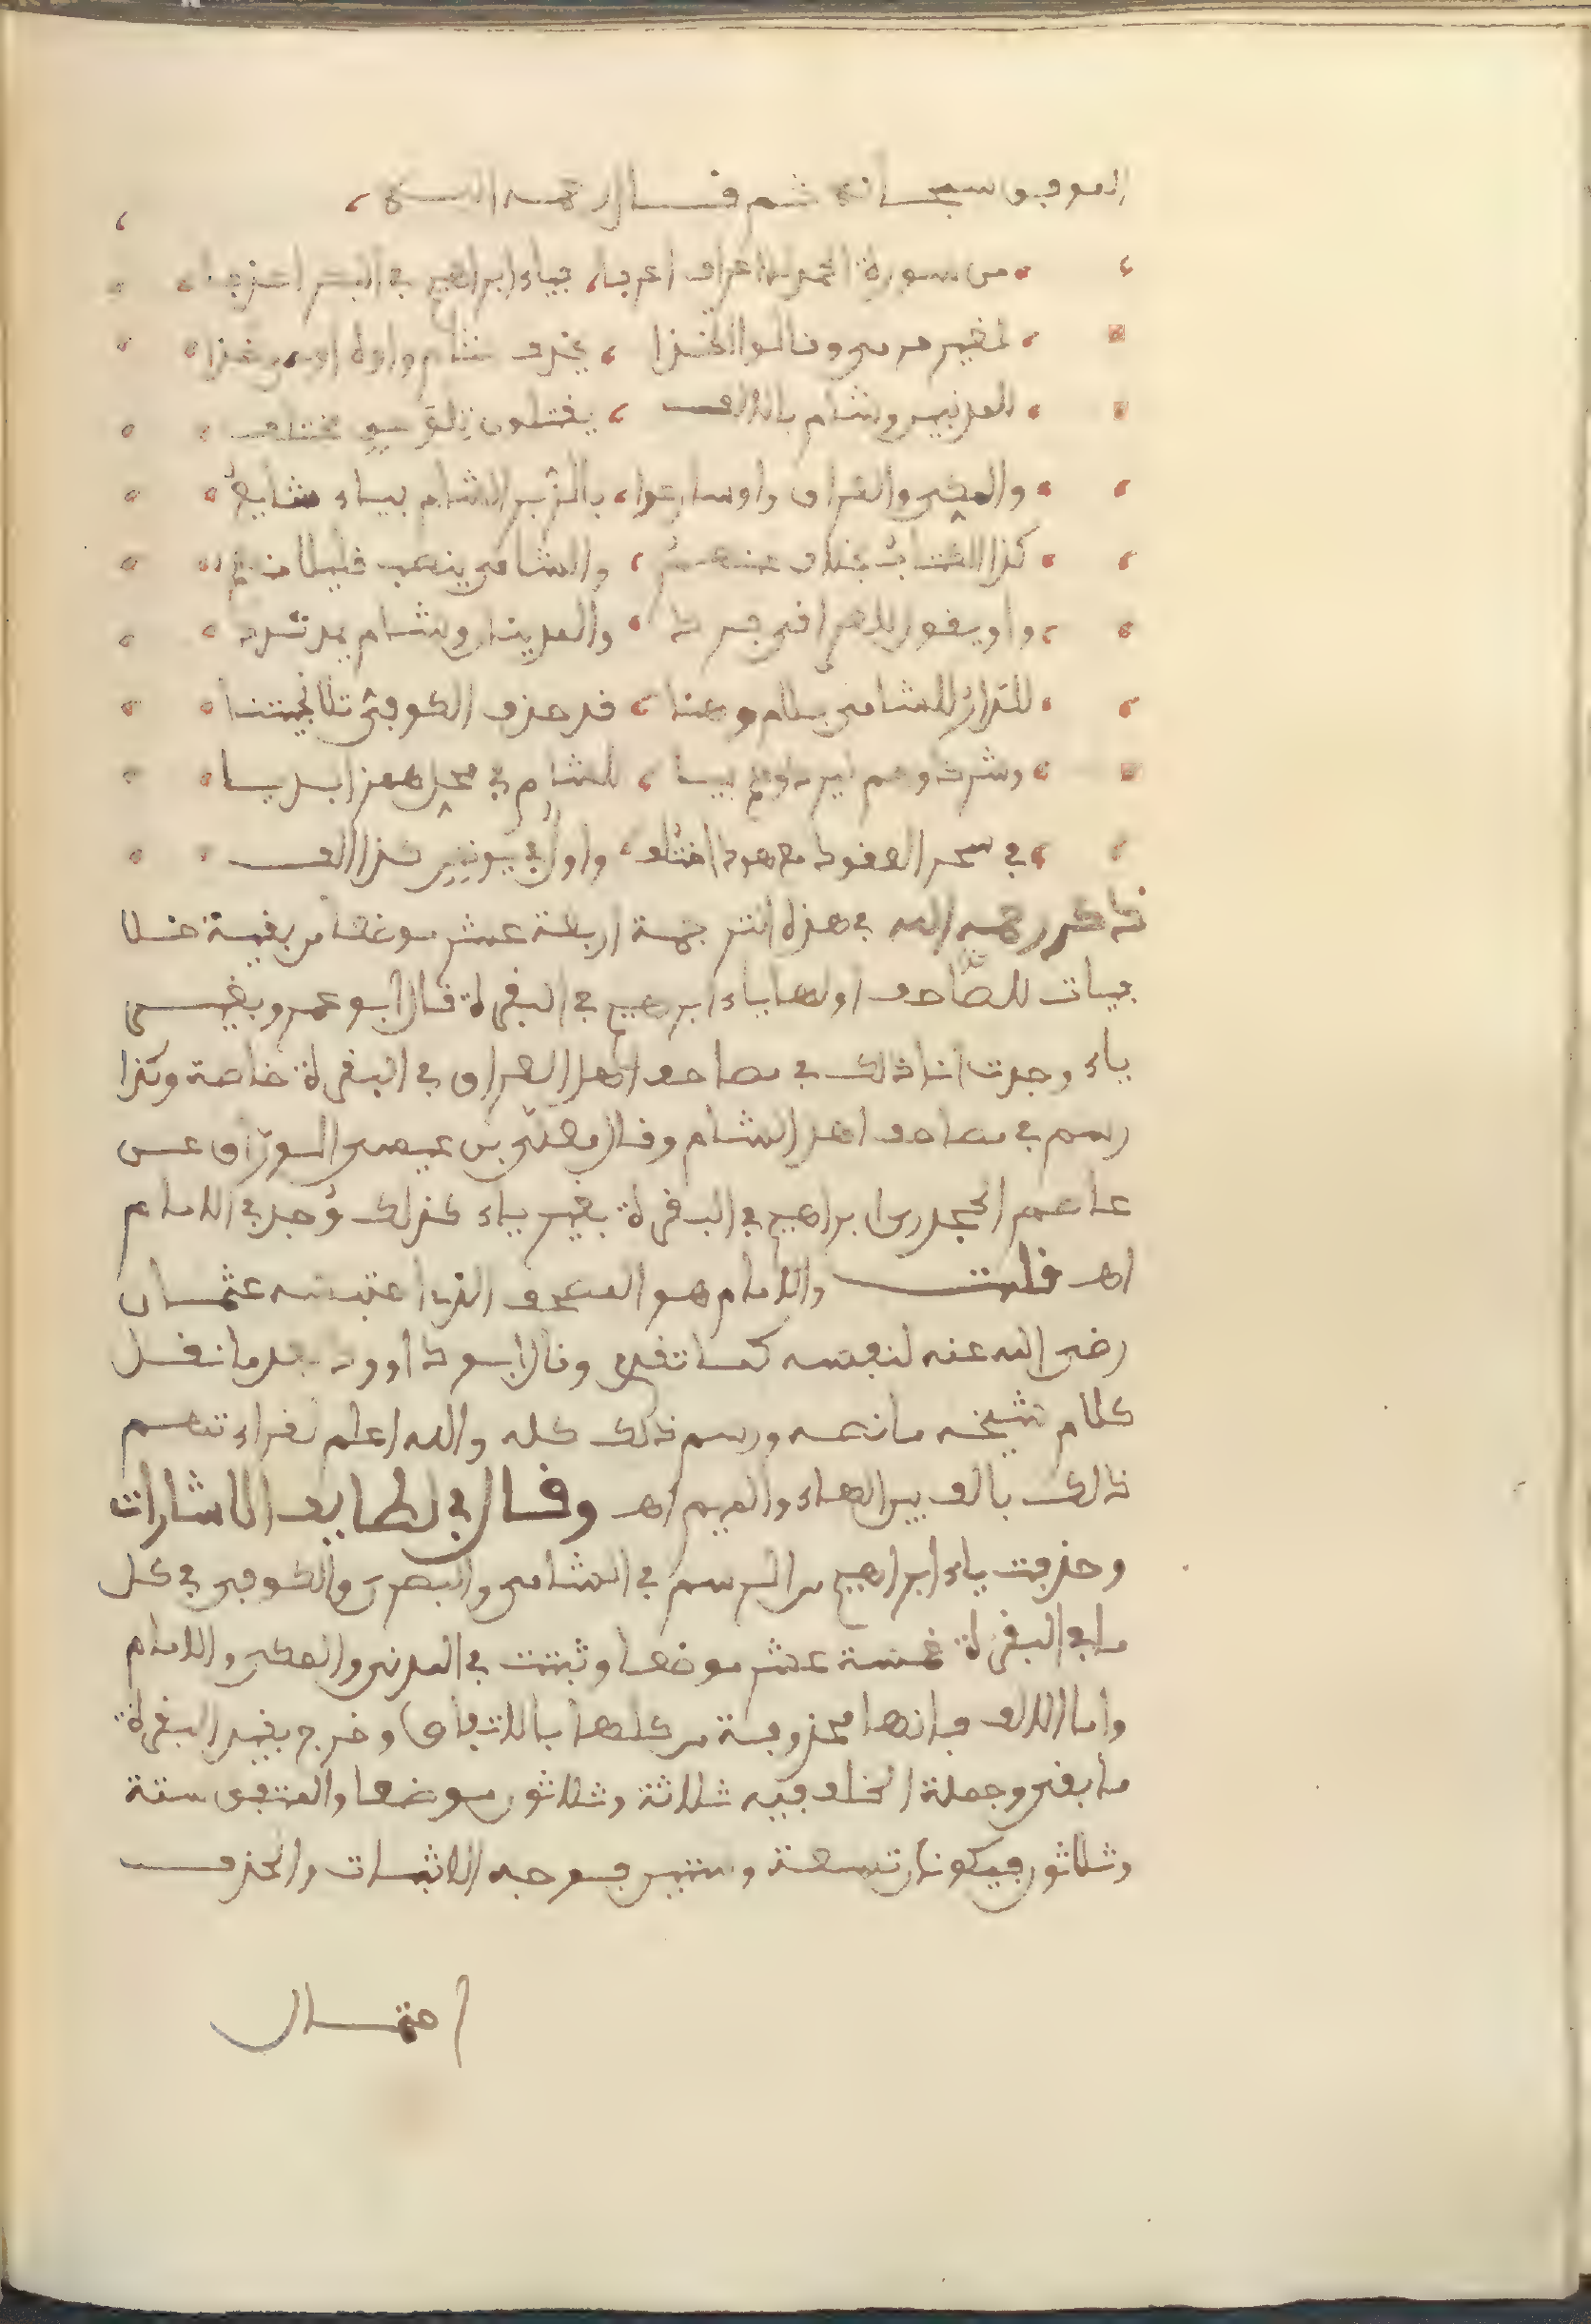 الموفق سبحانه ثم قال رحمه الله
من سورة الحمد للاعراف اعرفا، فياء ابراهيم في البكر احذفا
لغير حرمي وقالوا اتخذا، بحذف شام واوه اوصى خذا
للمدنيين وشام بالالف، يقتلون تلو حق مختلف
والمكي والعراق واوا سارعوا، بالزبر الشام بياء شايع
كذا الكتاب بخلاف عنهم، والشامي ينصب قليلا منهم
واو يقول للعراقي فزد، والمدنيان وشام يرتدد
للدار للشامي بلام وهنا، قد حذف الكوفي تا انجيتنا
وشركاوهم ليردوهم بيا، للشام في محل همز ابديا
في سحر العقود مع هود اختلف، واول في يونس كذا الف
ذكر رحمه الله في هذه الترجمة اربعة عشر موضعا من بقية خلا
فيات المصاحف اولها ياء ابرهيم في البقرة قال ابو عمرو بغيـر
ياء وجدت انا ذلك في مصاحف اهل العراق في البقرة خاصة وكذا
رسم في مصاحف اهل الشام وقال معلى بن عيسى الوراق عن
عاصم الجحدري ابراهيم في البقرة بغير ياء كذلك وجد في الامام
اهـ قلت والامام هو المصحف الذي اعتبسه عثمان
رضي الله عنه لنفسه كما تقدم وقال ابو داوود بعد ما نقل
كلام شيخه ما نصه ورسم ذلك كله والله اعلم لقراءتهم
ذالك بالف بين الهاء والميم اهـ وقال في لطايف الاشارات
وحذفت ياء ابراهيم من الرسم في الشامي والبصري والكوفي في كل
ما في البقرة خمسة عشر موضعا وثبتت في المدني والمكي والامام
واما الالف فانها محذوفة من كلها بالاتفاق وخرج بقيد البقرة
ما بقي وجملة المختلف فيه ثلاثة وثلاثون موضعا والمتفق ستة
وثلاثون فيكونان تسعة وستين فوجه الاثبات والحذف
احتمال